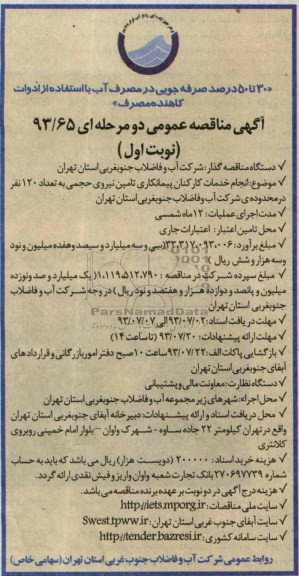 «۳۰ تا ۵۰ درصد صرفه جویی در مصرف آب با استفاده از ادوات
کاهنده مصرف»
آگهی مناقصه عمومی دو مرحله ای ۹۳/۶۵
(نوبت اول)
✓ دستگاه مناقصه گذار: شرکت آب و فاضلاب جنوبغربی استان تهران
✓ موضوع: انجام خدمات کارکنان پیمانکاری تامین نیروی حجمی به تعداد ۱۲۰ نفر
در محدوده ی شرکت آب و فاضلاب جنوبغربی استان تهران
✓ مدت اجرای عملیات: ۱۲ ماه شمسی
✓ محل تامین اعتبار: اعتبارات جاری
✓ مبلغ برآورد: ۳۳.۳۱۷.۰۹۳.۰۰۶ (سی و سه میلیارد و سیصد و هفده میلیون و نود
و سه هزار و شش ریال)
✓ مبلغ سپرده شرکت در مناقصه: ۱.۱۱۹.۵۱۲.۷۹۰ (یک میلیارد و صد و نوزده
میلیون و پانصد و دوازده هزار و هفتصد و نود ریال) در وجه شرکت آب و فاضلاب
جنوبغربی استان تهران
✓ مهلت دریافت اسناد: ۹۳/۰۷/۰۲ الی ۹۳/۰۷/۰۷
✓ مهلت ارائه پیشنهادات: ۹۳/۰۷/۲۰ (تا ساعت ۱۴)
✓ بازگشایی پاکات الف: ۹۳/۰۷/۲۲ ساعت ۱۰ صبح دفتر امور بازرگانی و قراردادهای
آبفای جنوبغربی استان تهران
✓ دستگاه نظارت: معاونت مالی و پشتیبانی
✓ محل اجراء: شهرهای زیر مجموعه آب و فاضلاب جنوبغربی استان تهران
✓ محل دریافت اسناد و ارائه پیشنهادات: دبیرخانه آبفای جنوبغربی استان تهران
واقع در تهران کیلومتر ۲۲ جاده ساوه - شهرک واوان - بلوار امام خمینی روبروی
کلانتری
✓ هزینه خرید اسناد: ۲۰۰۰۰۰ (دویست هزار) ریال می باشد که باید به حساب
شماره ۳۷۰۶۹۷۷۳۹ بانک تجارت شعبه واوان واریز و فیش نقدی ارائه گردد.
✓ هزینه درج آگهی در دو نوبت بر عهده برنده مناقصه می باشد.
✓ سایت ملی مناقصات: http://iets.mporg.ir
✓ سایت آبفای جنوب غربی استان تهران: Swest.tpww.ir
✓ سایت سامانه کشوری: http://tender.bazresi.ir
روابط عمومی شرکت آب و فاضلاب جنوب غربی استان تهران (سهامی خاص)
ParsNamadData